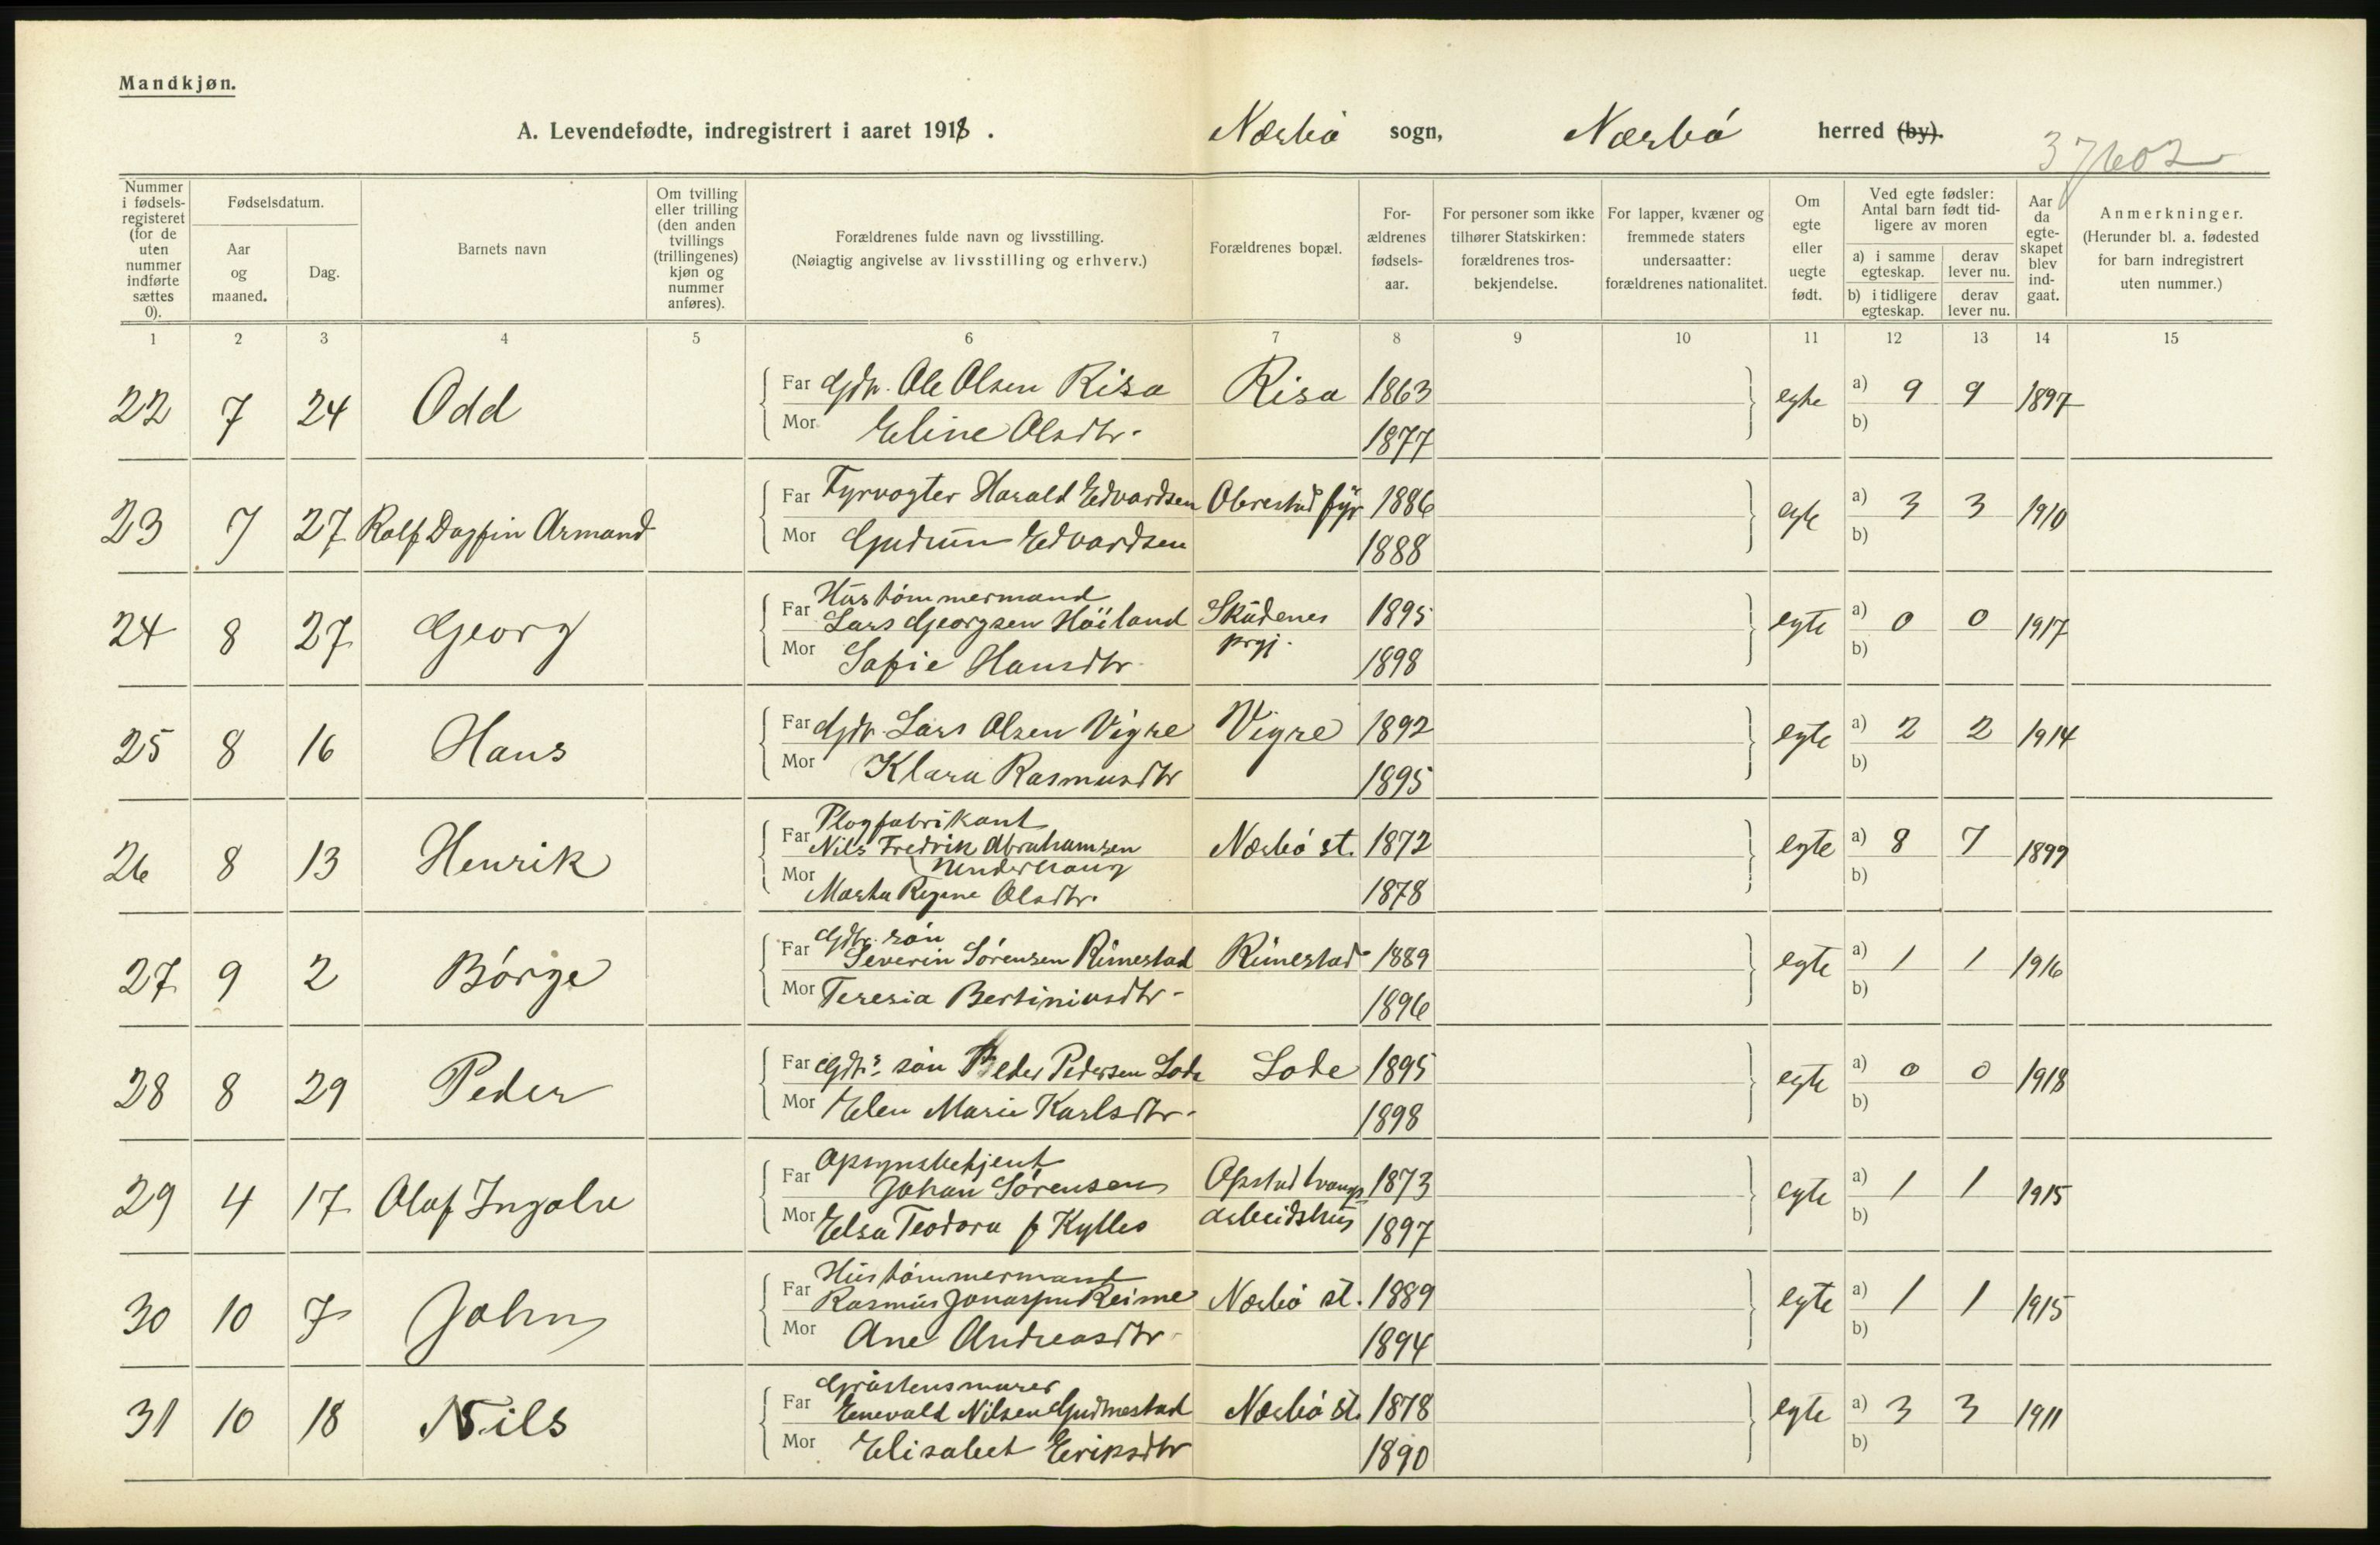 Mandkjøn.
A. Levendefødte, indregistrert i aaret 1918. Nærbó sogn, Nærbó herred (by).
37602
Nummer i fødsels-registeret (for de uten nummer indførte sættes 0).
Fødselsdatum.
Aar og maaned.
Dag.
Barnets navn
Om tvilling eller trilling (den anden tvillings (trillingenes) kjøn og nummer anføres).
Forældrenes fulde navn og livsstilling.
(Nøiagtig angivelse av livsstilling og erhverv.)
Forældrenes bopæl.
For-ældrenes fødsels-aar.
For personer som ikke tilhører Statskirken: forældrenes tros-bekjendelse.
For lapper, kvæner og fremmede staters undersaatter: forældrenes nationalitet.
Om egte eller uegte født.
Ved egte fødsler: Antal barn født tid-ligere av moren
a) i samme egteskap.
derav lever nu.
b) i tidligere egteskap.
derav lever nu.
Aar da egte-skapet blev ind-gaat.
Anmerkninger.
(Herunder bl. a. fødested for barn indregistrert uten nummer.)
1 2 3 4 5 6 7 8 9 10 11 12 13 14 15
22 7 24 Odd Far Gdr. Ole Olsen Risa Risa 1863 egte a) 9 9 1897
Mor Eline Olsdtr. 1877 b)
23 7 27 Rolf Dagfin Armand Far Fyrvogter Harald Edvardsen Obrestad fyr 1886 egte a) 3 3 1910
Mor Gudrun Edvardsen 1888 b)
24 8 27 Georg Far Hustómmermand
Lars Georgsen Höiland Skudenes 1895 egte a) 0 0 1917
Mor Sofie Hansdtr. prgj. 1898 b)
25 8 16 Hans Far Gdr. Lars Olsen Vigre Vigre 1892 egte a) 2 2 1914
Mor Klara Rasmusdtr 1895 b)
26 8 13 Henrik Far Plogfabrikant
Nils Fredrik Abrahamsen Nærbó st. 1872 egte a) 8 7 1899
Underhaug
Mor Marta Regine Olsdtr. 1878 b)
27 9 2 Börge Far Gdbr. són
Severin Sórensen Rimestad Rimestad 1889 egte a) 1 1 1916
Mor Teresia Bertiniusdtr. 1896 b)
28 8 29 Peder Far Gdr.s són Peder Pedersen Lode Lode 1895 egte a) 0 0 1918
Mor Elen Marie Karlsdtr. 1898 b)
29 4 17 Olaf Ingolv Far Opsynsbetjent
Johan Sórensen Opstad tvangs 1873 egte a) 1 1 1915
Mor Elsa Teodora f Kylles arbeidshus 1897 b)
30 10 7 John Far Hustómmermand
Rasmus Jonassen Reime Nærbó st. 1889 egte a) 1 1 1915
Mor Ane Andreasdtr. 1894 b)
31 10 18 Nils Far Gråstensmurer
Enevald Nilsen Gudmestad Nærbó st. 1878 egte a) 3 3 1911
Mor Elisabet Eriksdtr 1890 b)